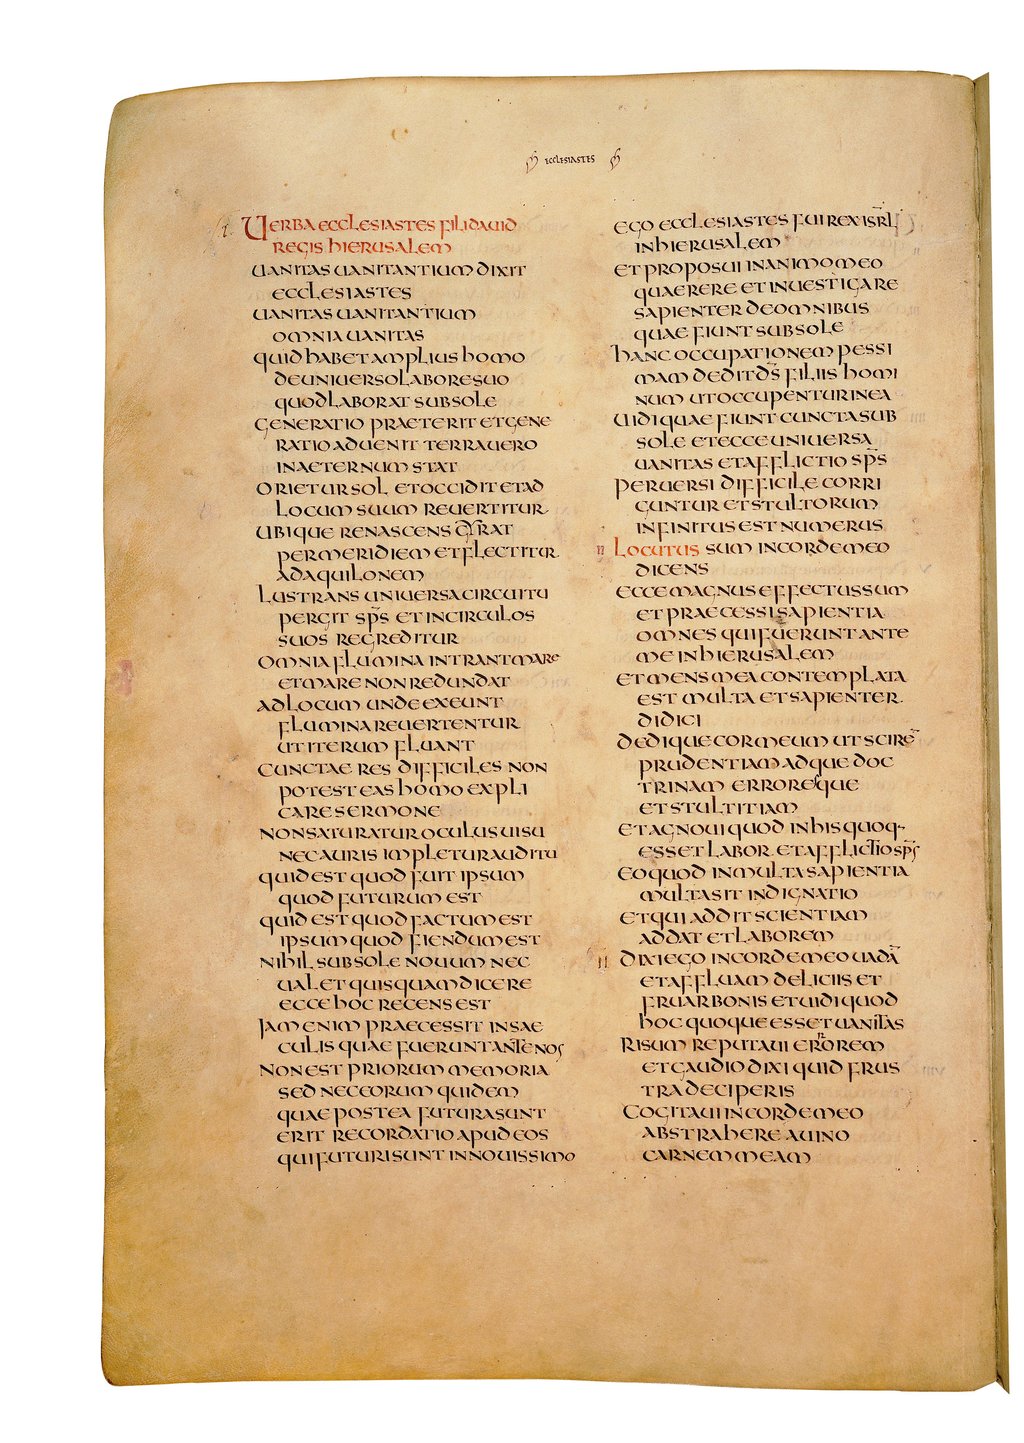 ECCLESIASTES
I. UERBA ECCLESIASTES FILI DAUID
REGIS HIERUSALEM
UANITAS UANITANTIUM DIXIT
ECCLESIASTES
UANITAS UANITANTIUM
OMNIA UANITAS
QUID HABET AMPLIUS HOMO
DE UNIUERSO LABORE SUO
QUOD LABORAT SUB SOLE
GENERATIO PRAETERIT ET GENE
RATIO ADUENIT TERRA UERO
IN AETERNUM STAT
ORIETUR SOL ET OCCIDIT ET AD
LOCUM SUUM REUERTITUR
UBIQUE RENASCENS GYRAT
PER MERIDIEM ET FLECTITUR
AD AQUILONEM
LUSTRANS UNIUERSA CIRCUITU
PERGIT SP̅S ET IN CIRCULOS
SUOS REGREDITUR
OMNIA FLUMINA INTRANT MARE
ET MARE NON REDUNDAT
AD LOCUM UNDE EXEUNT
FLUMINA REUERTENTUR
UT ITERUM FLUANT
CUNCTAE RES DIFFICILES NON
POTEST EAS HOMO EXPLI
CARE SERMONE
NON SATURATUR OCULUS UISU
NEC AURIS IMPLETUR AUDITU
QUID EST QUOD FUIT IPSUM
QUOD FUTURUM EST
QUID EST QUOD FACTUM EST
IPSUM QUOD FIENDUM EST
NIHIL SUB SOLE NOUUM NEC
UALET QUISQUAM DICERE
ECCE HOC RECENS EST
IAM ENIM PRAECESSIT IN SAE
CULIS QUAE FUERUNT ANTE NOS
NON EST PRIORUM MEMORIA
SED NEC EORUM QUIDEM
QUAE POSTEA FUTURA SUNT
ERIT RECORDATIO APUD EOS
QUI FUTURI SUNT IN NOUISSIMO
EGO ECCLESIASTES FUI REX ISR̅L
IN HIERUSALEM
ET PROPOSUI IN ANIMO MEO
QUAERERE ET INUESTIGARE
SAPIENTER DE OMNIBUS
QUAE FIUNT SUB SOLE
HANC OCCUPATIONEM PESSI
MAM DEDIT D̅S FILIIS HOMI
NUM UT OCCUPENTUR IN EA
UIDI QUAE FIUNT CUNCTA SUB
SOLE ET ECCE UNIUERSA
UANITAS ET AFFLICTIO SP̅S
PERUERSI DIFFICILE CORRI
GUNTUR ET STULTORUM
INFINITUS EST NUMERUS
II LOCUTUS SUM IN CORDE MEO
DICENS
ECCE MAGNUS EFFECTUS SUM
ET PRAECESSI SAPIENTIA
OMNES QUI FUERUNT ANTE
ME IN HIERUSALEM
ET MENS MEA CONTEMPLATA
EST MULTA ET SAPIENTER
DIDICI
DEDIQUE COR MEUM UT SCIRE̅
PRUDENTIAM ADQUE DOC
TRINAM ERRORESQUE
ET STULTITIAM
ET AGNOUI QUOD IN HIS QUOQ·
ESSET LABOR ET AFFLICTIO SP̅S
EO QUOD IN MULTA SAPIENTIA
MULTA SIT INDIGNATIO
ET QUI ADDIT SCIENTIAM
ADDAT ET LABOREM
II DIXI EGO IN CORDE MEO UADA̅
ET AFFLUAM DELICIIS ET
FRUAR BONIS ET UIDI QUOD
HOC QUOQUE ESSET UANITAS
RISUM REPUTAUI ERROREM
ET GAUDIO DIXI QUID FRUS
TRA DECIPERIS
COGITAUI IN CORDE MEO
ABSTRAHERE A UINO
CARNEM MEAM